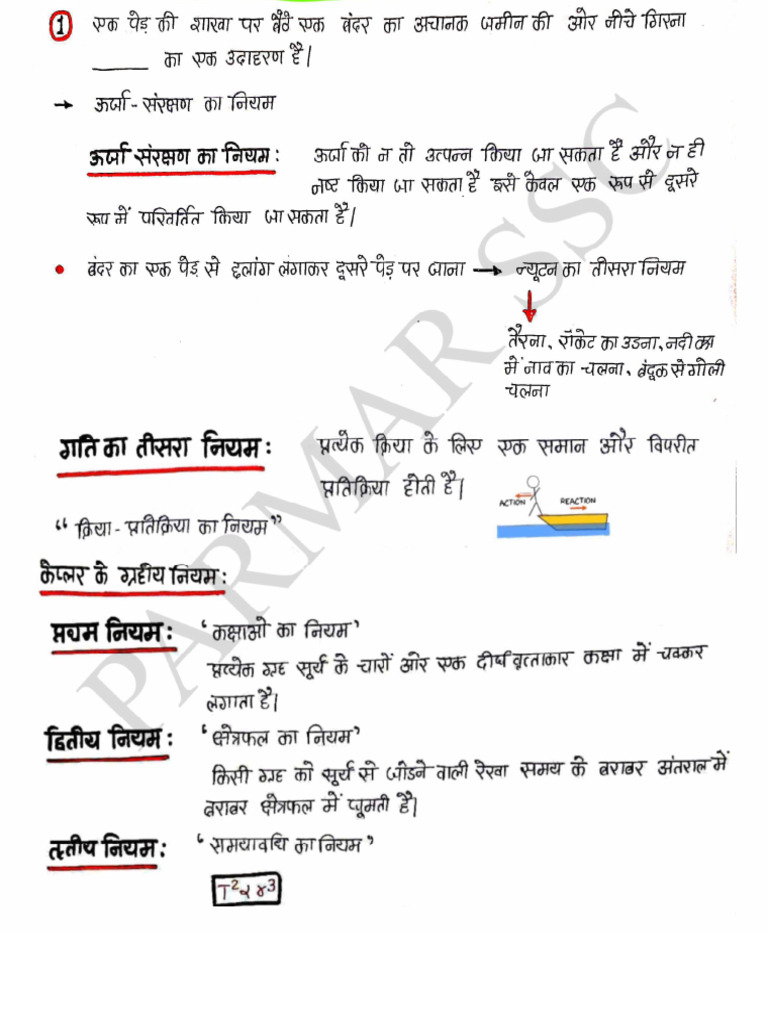 ① एक पेड़ की शाखा पर बैठे एक बंदर का अचानक जमीन की ओर नीचे गिरना
______ का एक उदाहरण है।
→ ऊर्जा-संरक्षण का नियम
ऊर्जा संरक्षण का नियम: ऊर्जा को न तो उत्पन्न किया जा सकता है और न ही
नष्ट किया जा सकता है इसे केवल एक रूप से दूसरे
रूप में परिवर्तित किया जा सकता है।
• बंदर का एक पेड़ से छलांग लगाकर दूसरे पेड़ पर जाना → न्यूटन का तीसरा नियम
तैरना, रॉकेट का उडना, नदी
में नाव का चलना, बंदूक से गोली
चलना
गति का तीसरा नियम: प्रत्येक क्रिया के लिए एक समान और विपरीत
प्रतिक्रिया होती है।
ACTION REACTION
“क्रिया-प्रतिक्रिया का नियम”
केप्लर के ग्रहीय नियम:
प्रथम नियम: ‘कक्षाओ का नियम’
प्रत्येक ग्रह सूर्य के चारों ओर एक दीर्घवृत्ताकार कक्षा में चक्कर
लगाता है।
द्वितीय नियम: ‘क्षेत्रफल का नियम’
किसी ग्रह को सूर्य से जोडने वाली रेखा समय के बराबर अंतराल में
बराबर क्षेत्रफल में घूमती है।
तृतीय नियम: ‘समयावधि का नियम’
T² ∝ r³
PARMAR SSC